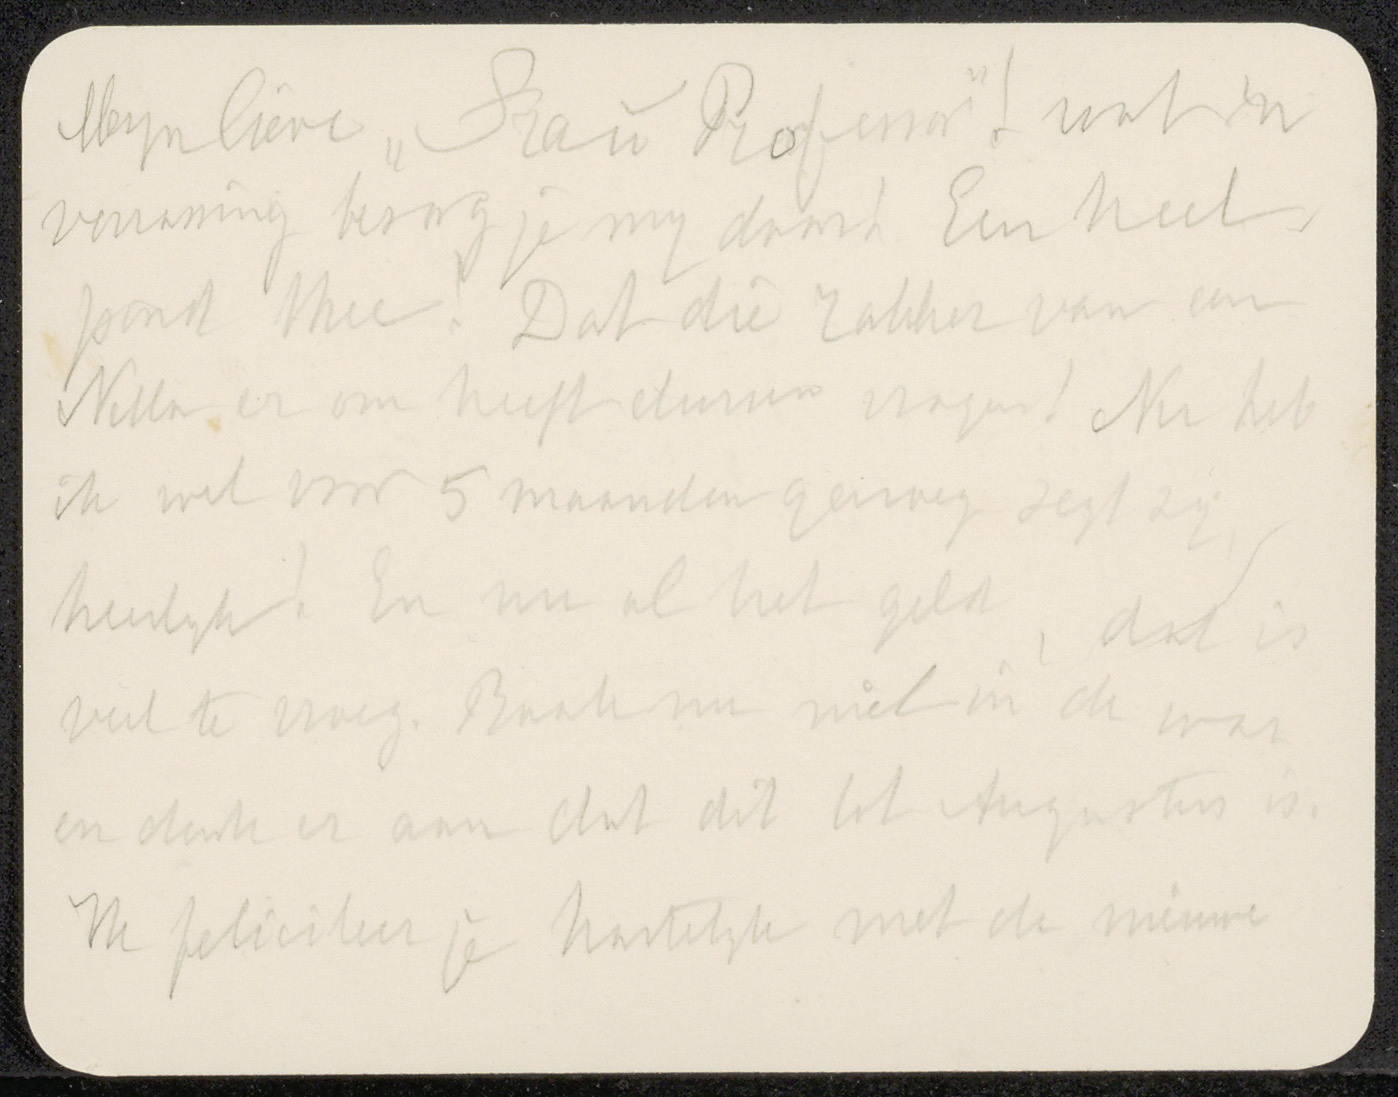 Myn lieve „Frau Professor"! wat 'n
verrassing bezorg je my daar! Een heel
pond thee! Dat die rakker van een
Nella er om heeft durven vragen! Nu heb
ik wel voor 5 maanden genoeg zegt zy,
heerlyk! En nu al het geld, dat is
veel te vroeg. Raak nu niet in de war
en denk er aan dat dit tot Augustus is.
Ik feliciteer je hartelyk met de nieuwe